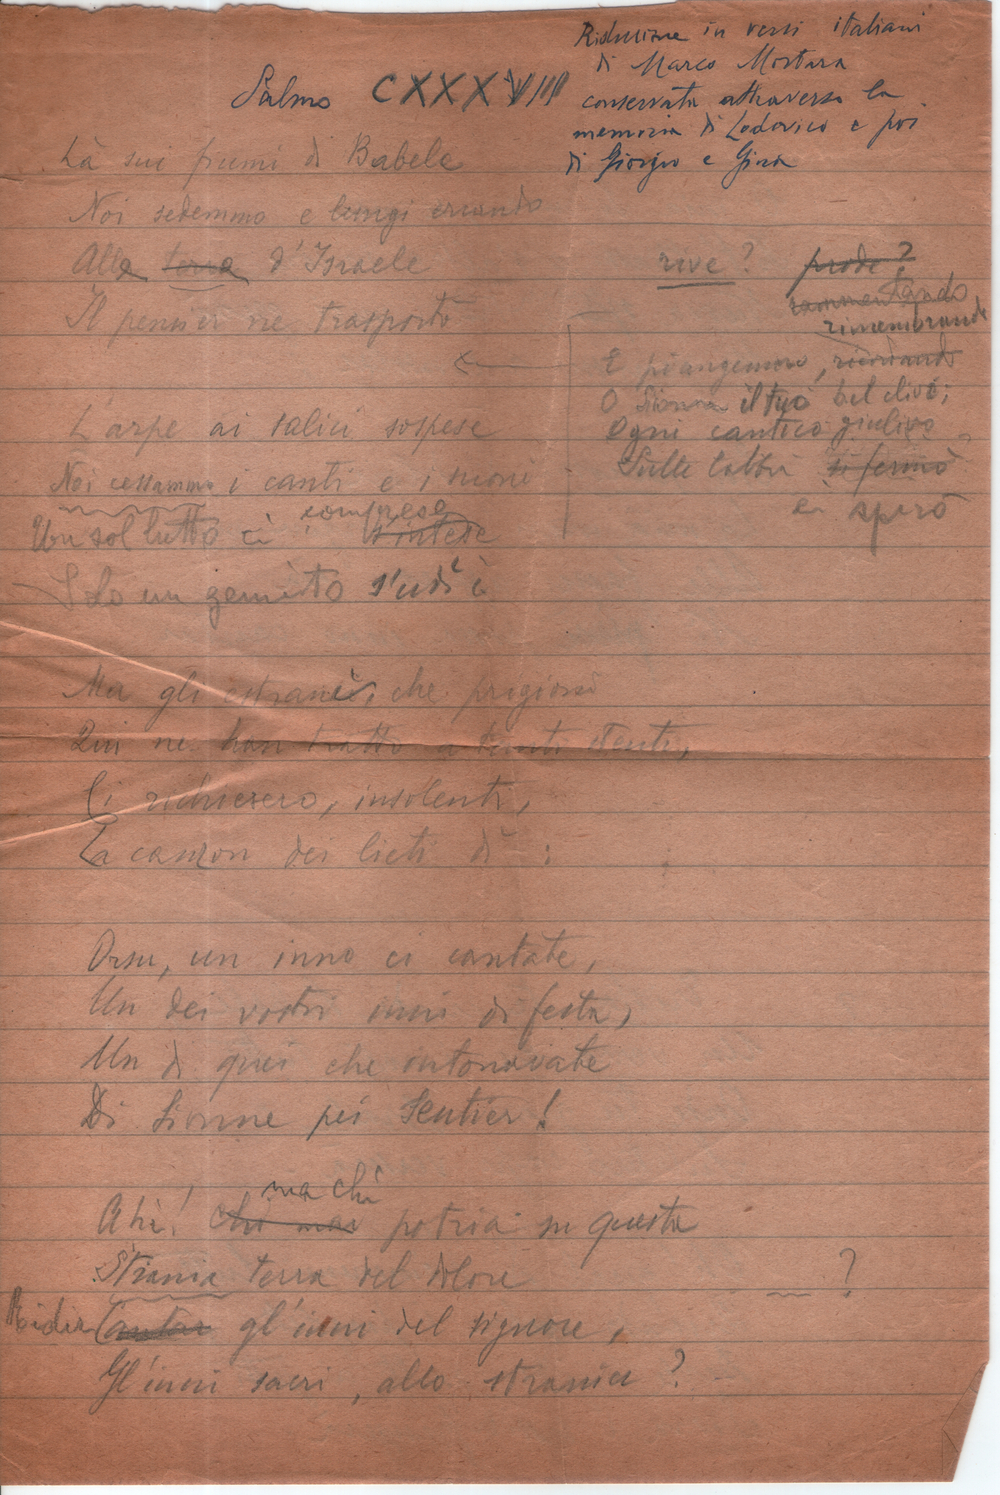 Salmo CXXXVIII
Riduzione in versi italiani
di Marco Mortara
conservata attraverso la
memoria di Lodovico e poi
di Giorgio e Gina
Là sui fiumi di Babele
Noi sedemmo e lungi errando
Alla terra d'Israele
Il pensier ne trasportò
rive ? prode ?
rammentando
rimembrando
E piangemmo, ricordando
O Sionne il tuo bel clivo;
Ogni cantico giulivo
Sulle labbra si fermò
ci spirò
L'arpe ai salici sospese
Noi cessammo i canti e i suoni
comprese
Un sol lutto ci s'intese
Solo un gemito s'udì
Ma gli estranei, che prigioni
Qui ne han tratto a tanti stenti,
Ci richiesero, insolenti,
La canzon dei lieti dì :
Orsu, un inno ci cantate,
Un dei vostri inni di festa,
Un di quei che intonavate
Di Sionne pei sentier !
ma chi
Ahi! chi mai potria in questa
Strania terra del dolore ?
Ridir Cantar gl'inni del signore,
Gl'inni sacri, allo stranier ?